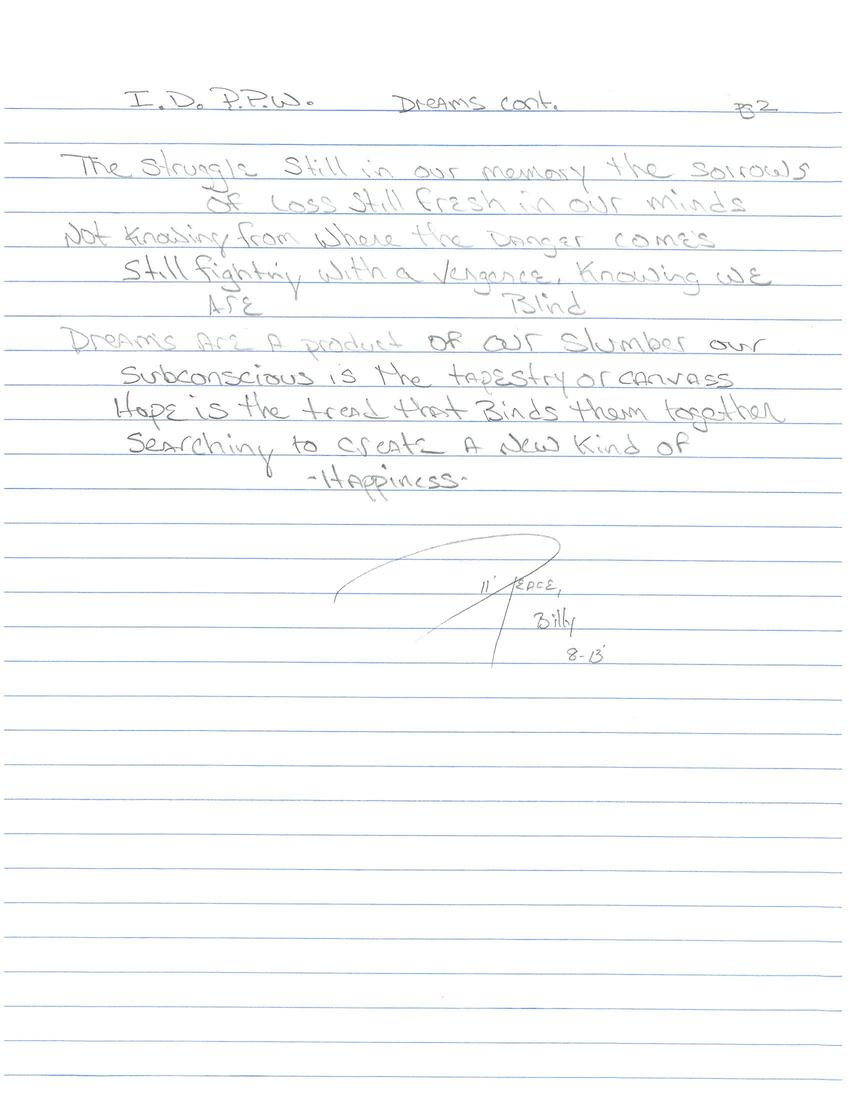 I.D. P.P.W. Dreams cont. pg 2
The struggle still in our memory the sorrows
of loss still fresh in our minds
Not Knowing from where the Danger comes
still fighting with a vengence, Knowing we
Are Blind
Dreams Are A product of our slumber our
subconscious is the tapestry or canvass
Hope is the tread that Binds them together
searching to create A New Kind of
-Happiness-
Peace,
Billy
8-13